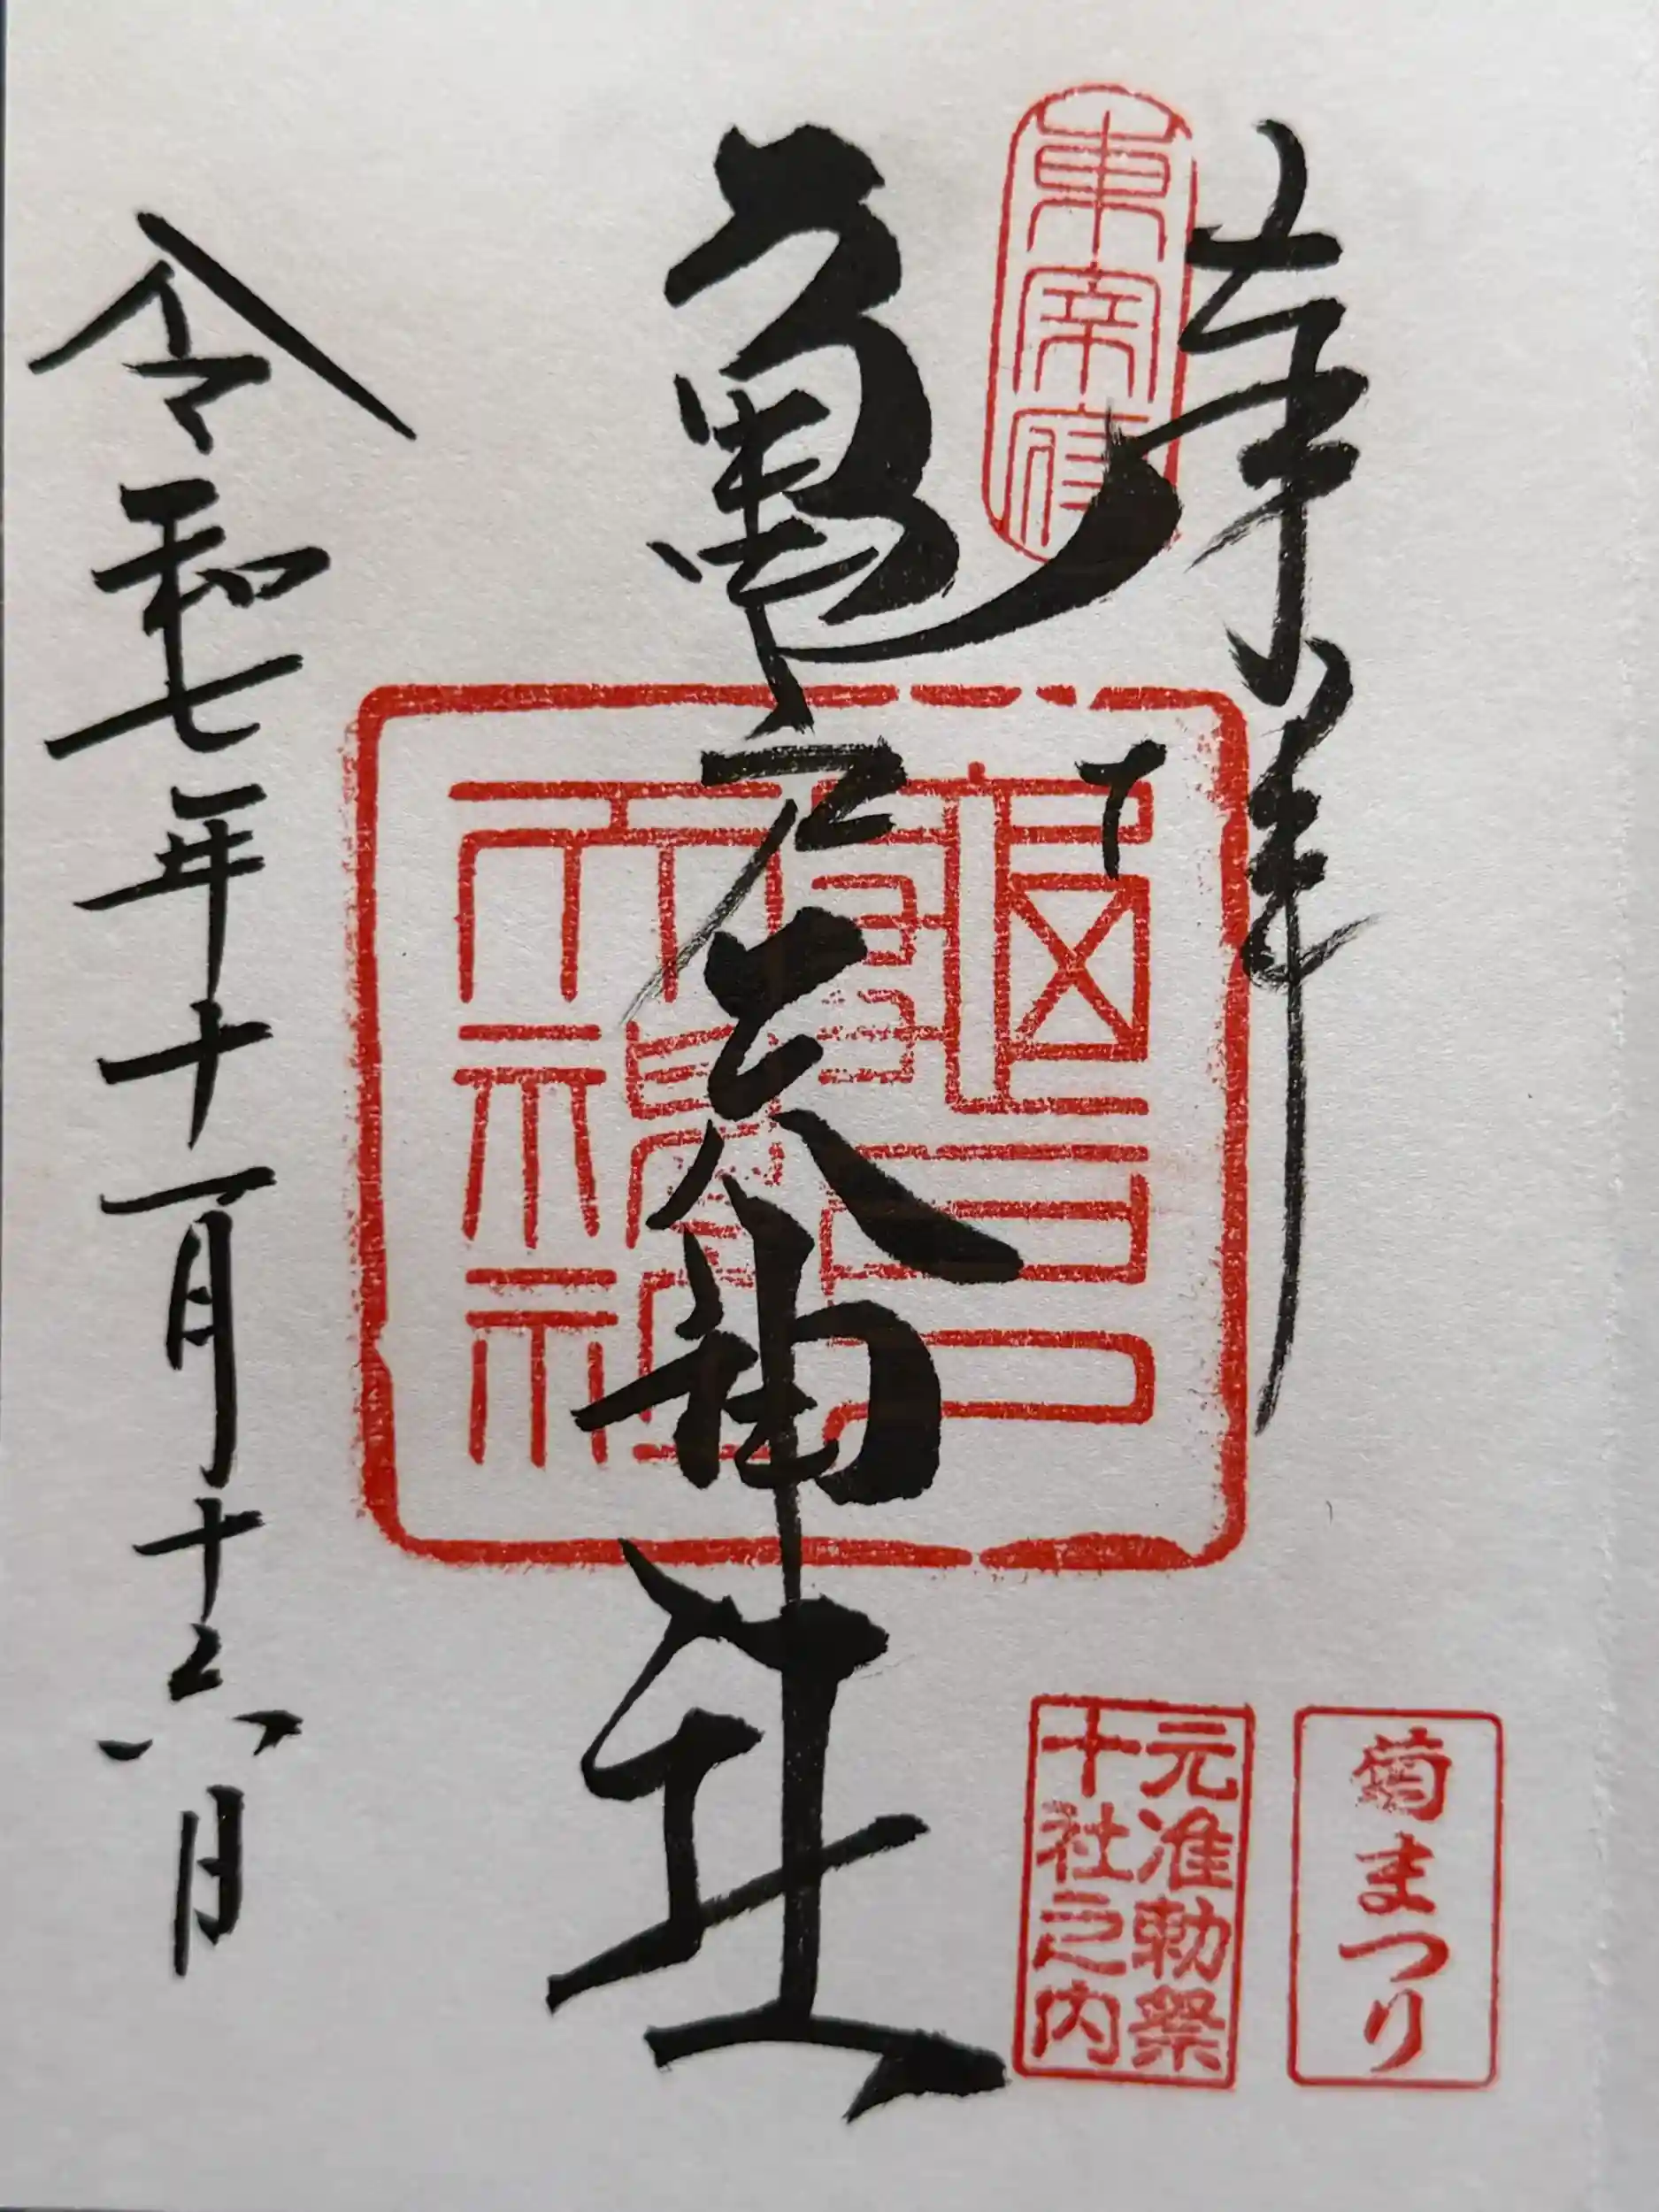 奉拝
東宰府
亀戸天神社
龜戸
天神社
令和七年十一月十六日
菊まつり
元准勅祭
十社之内